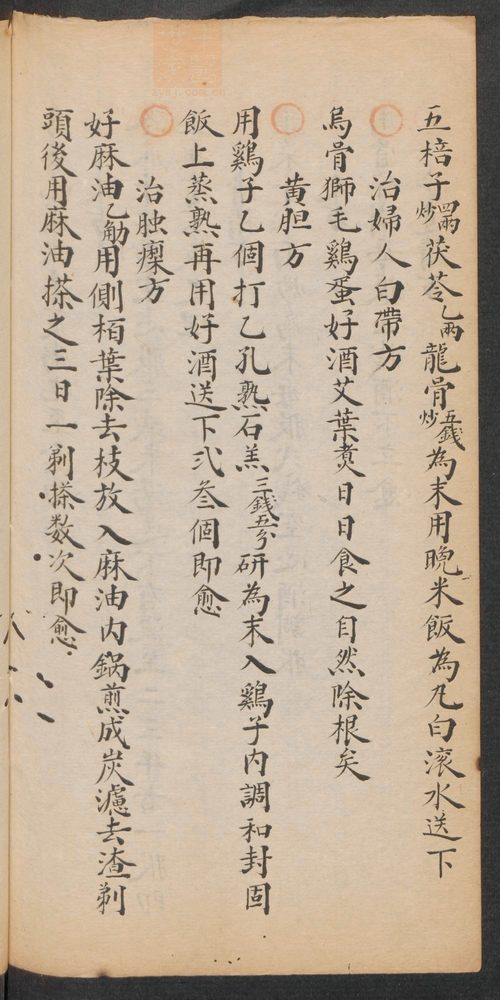 五棓子四兩炒茯苓乙兩龍骨五錢炒為末用晚米飯為丸白滾水送下
治婦人白帶方
烏骨獅毛鷄蛋好酒艾葉煑日日食之自然除根矣
黄胆方
用鷄子乙個打乙孔熟石羔三錢五分研為末入鷄子內調和封固
飯上蒸熟再用好酒送下弍叁個即愈
治𦙶瘰方
好麻油乙觔用側栢葉除去枝放入麻油內鍋煎成炭濾去渣剃
頭後用麻油搽之三日一剃搽数次即愈